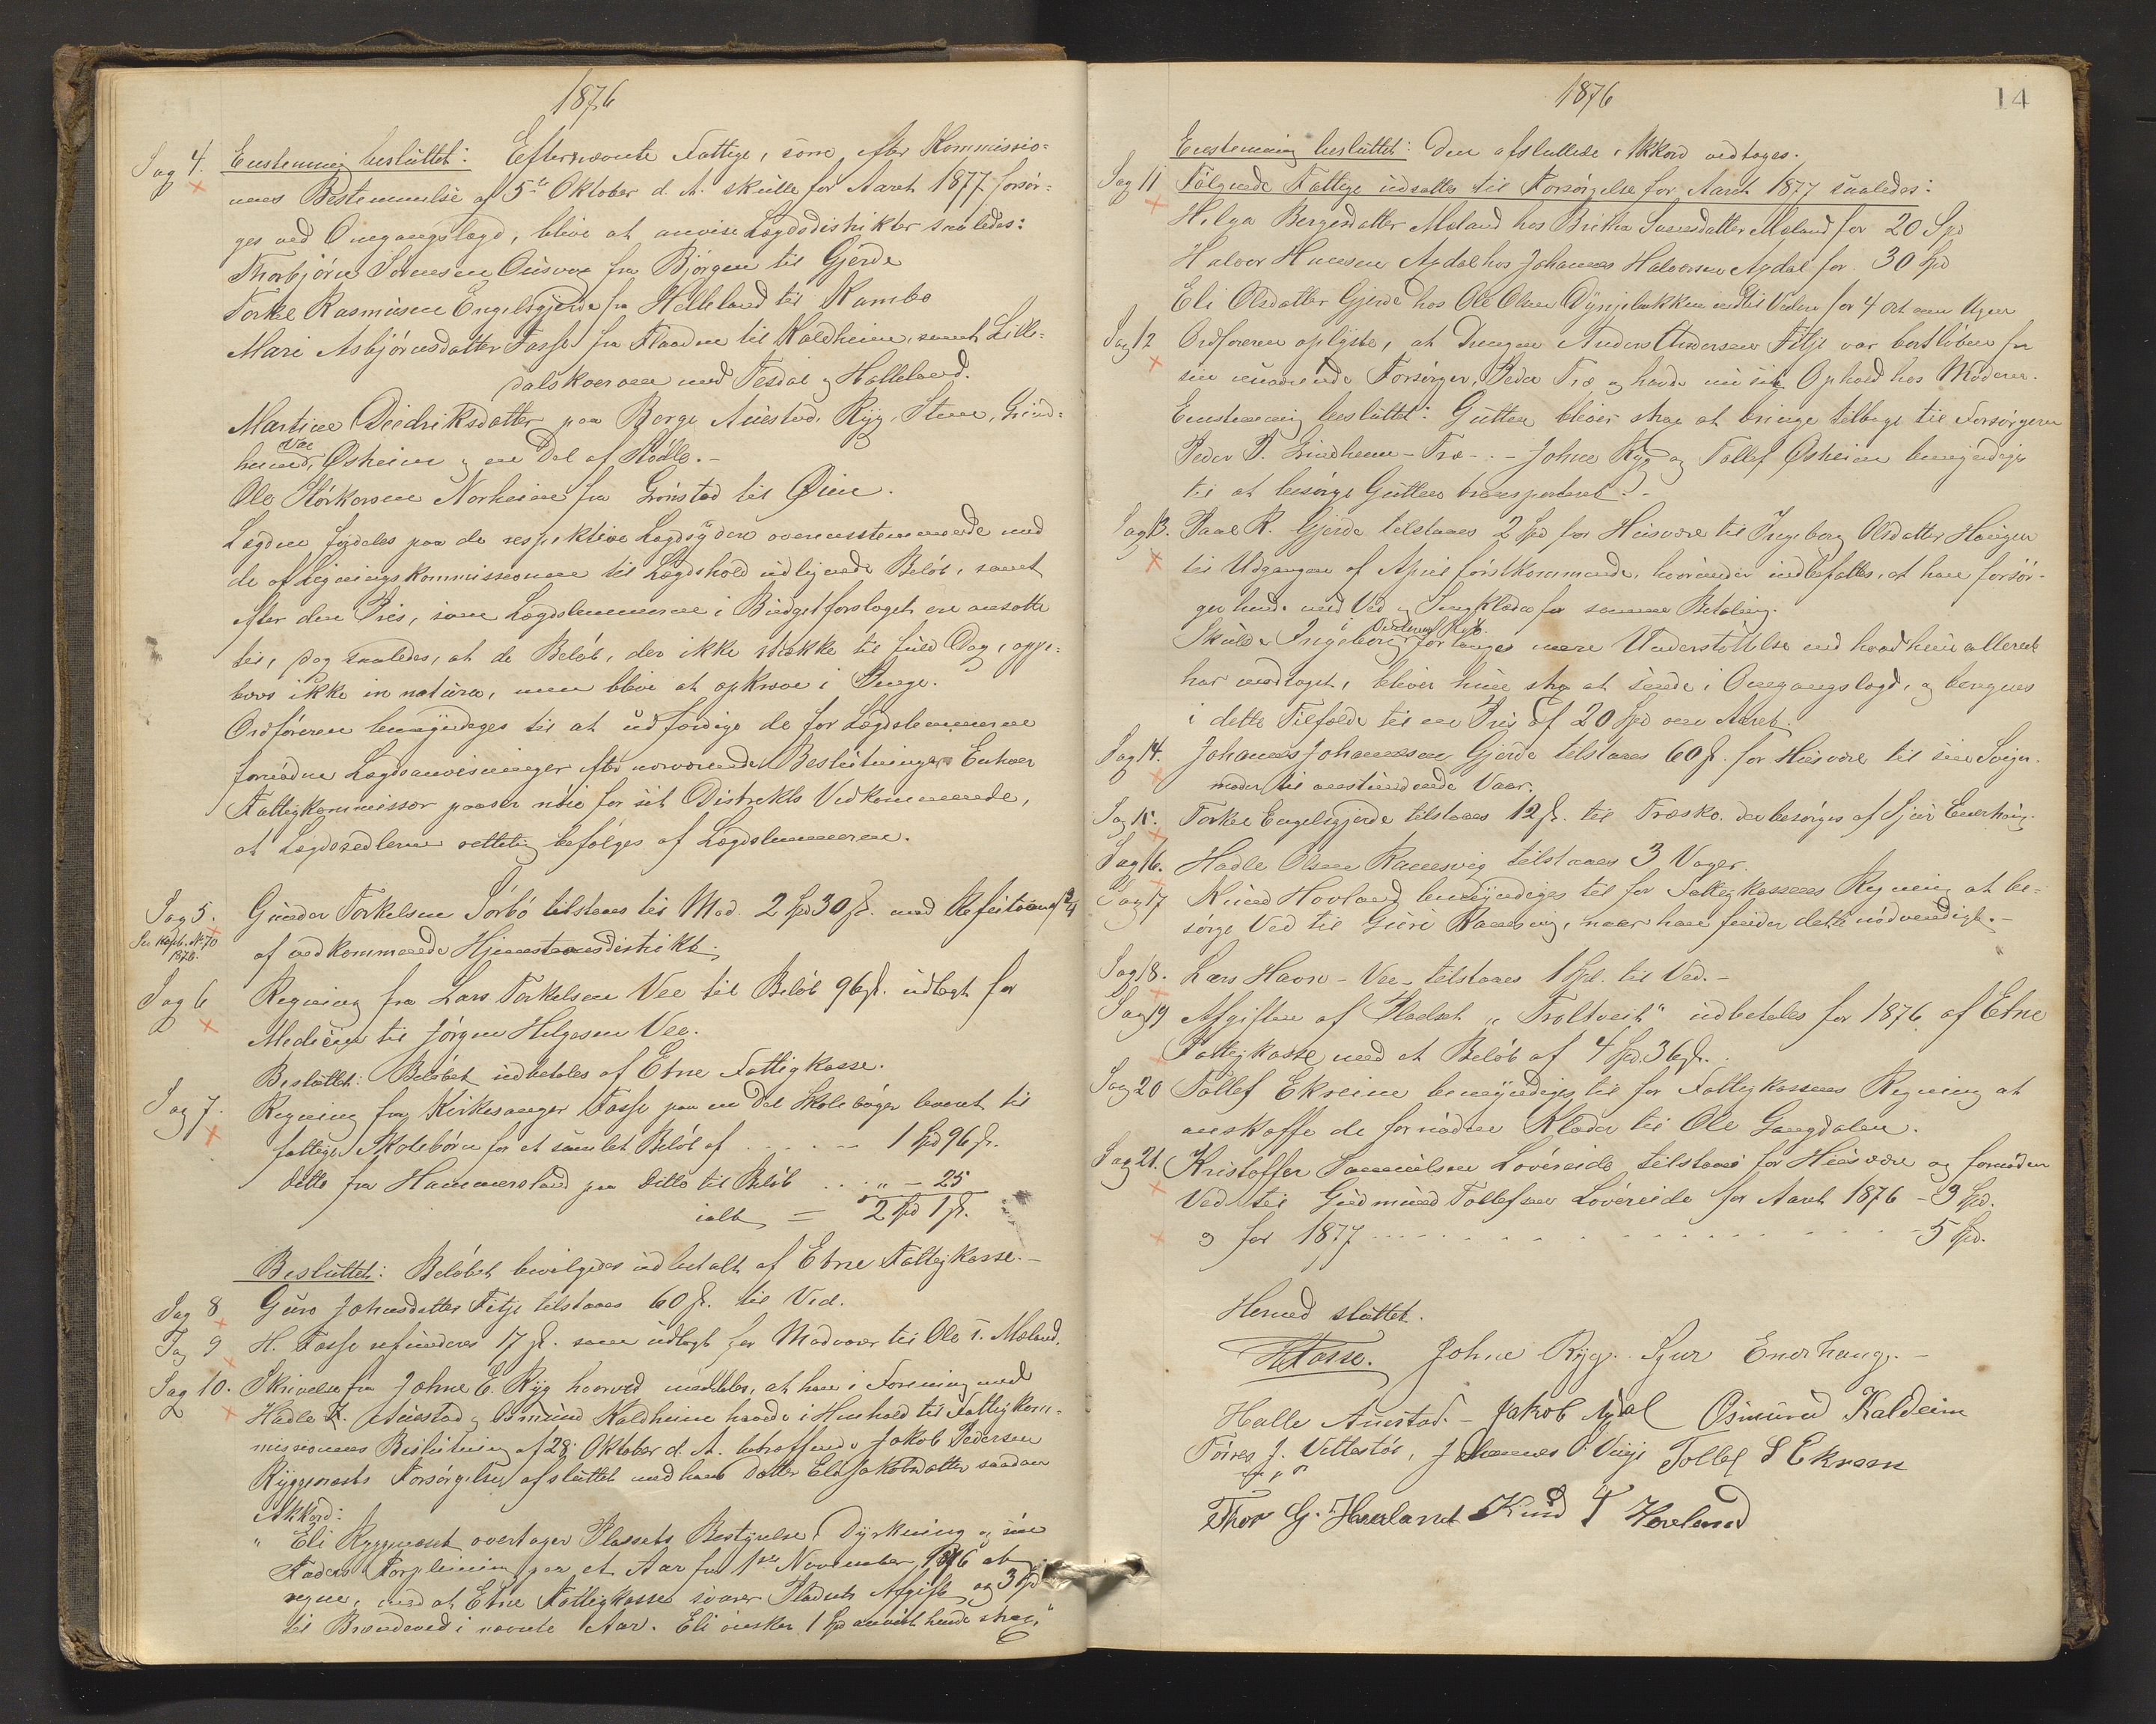 1876
Sag 4. Enstemmig besluttet: Efternævnte Fattige, som efter Kommissio-
nens Bestemmelse af 5te Oktober d. A. skulle for Aaret 1877 forsør-
ges ved Omgangslægd, blive at anvise Lægdsdistrikter saaledes:
Thorbjörn Sörensen fra Bjørgen til Gjerde
Torkel Rasmusen Engelsgjerde fra Helleland til Rambe
Mari Asbjörnsdatter Fosse fra Flaaden til Kaldheim, samt Lille-
dalskvernen med Tesdal og Halleland.
Martine Deedriksdatter paa Berge, Auestad, Ryg, Stene, Grind-
heim, Vae, Østreim og en Del af Rödle.-
Ole Störkersen Norheim fra Grönstad til Øien.
Lægden fordeles paa de respektive Lægdsydere overensstemmende med
de af Ligningskommissionen til Lægdshold udlignede Beløb, samt
efter den Pris, som Lægdslemmerne i Budgetforslaget ere ansatte
til, dog saaledes, at de Beløb, der ikke række til fuld Dag, appe-
beres ikke in natura, men blive at opkræve i Penge.
Ordføreren bemyndiges til at udfærdige de for Lægdslemmerne
fornødne Lægdsanvisninger efter nærværende Beslutninger. Enhver
Fattigkommissær paaser nøie for sit Distrikts Vedkommende,
at Lægdssedlerne rettelig befølges af Lægdslemmerne.
Sag 5. Gunder Torkelsen Sørbø tilstaaes til Mad 2 Spd 30 ß. med Refusion 3/4
Se Kopb. No 70
1876. af vedkommende Hjemstavnsdistrikt.
Sag 6 Regning fra Lars Torkelsen Vee til Beløb 96 ß. udlagt for
Medicin til Jörgen Helgesen Vee.
Besluttet: Beløbet udbetales af Etne Fattigkasse.
Sag 7. Regning fra Kirkesanger Fosse paa en Del Skolebøger leveret til
fattige Skolebørn for et samlet Beløb af . . . . . . 1 Spd 96 ß.
ditto fra Hammersland paa ditto til Beløb . . . . " - 25
ialt = 2 Spd 1 ß.
Besluttet: Beløbet bevilgedes udbetalt af Etne Fattigkasse.-
Sag 8 Guro Johnsdatter Fitje tilstaaes 60 ß. til Ved.
Sag 9 H. Fosse refunderes 17 ß. som udlagt for Madvarer til Ole T. Mæland.
Sag 10. Skrivelse fra Johne E. Ryg hvorved meddeles, at han i Forening med
Hadle K. Auestad og Osmund Kaldheim havde i Henhold til Fattigkom-
missionens Beslutning af 28. Oktober d. A. betræffende Jakob Pedersen
Ryggenæsets Forsørgelse afsluttet med hans Datter Eli Jakobsdatter saadan
Akkord:
" Eli Ryggenæset overtager Plassets Bestyrelse, Dyrkning og sin
Faders Forpleining paa et Aar fra 1ste November 1876 at
regne, mod at Etne Fattigkasse svarer Pladsens Afgift og 3 Spd
til Brændeved i nævnte Aar. Eli ønsker 1 Spd anvist hende strax."
1876
14
Enstemmig besluttet: Den afsluttede Akkord vedtages.
Sag 11 Følgende Fattige udsættes til Forsørgelse for Aaret 1877 saaledes:
Helga Bergesdatter Mæland hos Britha Mæland for 20 Spd
Halvor Hansen Axdal hos Johannes Halvorsen Axdal for 30 Spd
Eli Olsdatter Gjerde hos Ole Olsen Dynjebakken indtil Videre for 4 Ort om Ugen
Sag 12 Ordføreren oplyste, at Drengen Anders Andersen Fitje var bortløben fra
sin nuværende Forsørger, Peder Træ og havde nu sit Ophold hos Moderen.
Enstemmig besluttet: Gutten bliver strax at bringe tilbage til Forsørgeren
Peder P. Grindheim-Træ-.- Johne Ryg og Tollef Østreim bemyndiges
til at besørge Gutten transporteret.-
Sag 13. Paal R. Gjerde tilstaaes 2 Spd for Husvære til Ingeborg Olsdatter Haugen
til Udgangen af April førstkommende, hvorunder indbefattes, at han forsør-
ger hende med Ved og Sengklæder for samme Betaling.
Skulde Ingeborg forlange mere Understøttelse end hvad hun allerede
har modtaget, bliver hun strax at sende i Omgangslægd, og beregnes
i dette Tilfælde til en Pris af 20 Spd om Aaret.
Sag 14. Johannes Johannessen Gjerde tilstaaes 60 ß. for Husvære til sin Sviger-
moder til anstundende Vaar.
Sag 15. Torkel Engelsgjerde tilstaaes 12 ß. til Træsko, der besørges af Sjur Enerhaug.
Sag 16. Hadle Olsen Ramsvig tilstaaes 3 Voger
Sag 17 Knud Hovland bemyndiges til for Fattigkassens Regning at be-
sørge Ved til Guri Ramsvig, naar han finder dette nødvendigt.-
Sag 18. Lars Havn - Vee - tilstaaes 1 Spd. til Ved.-
Sag 19 Afgiften af Pladset "Troltveit" udbetales for 1876 af Etne
Fattigkasse med et Beløb af 4 Spd. 36 ß.
Sag 20 Tollef Ekreim bemyndiges til for Fattigkassens Regning at
anskaffe de fornødne Klæder til Ole Gangdalen.
Sag 21. Kristoffer Samuelsen Løvereide tilstaaes for Husvære og fornøden
Ved til Gudmund Tollefsen Løvereide for Aaret 1876 - 3 Spd.
og for 1877 . . . . . . . . . . . . . - 5 Spd.
Hermed sluttet.
HFosse. Johne Ryg. Sjur Enerhaug.-
Halle Auestad.- Jakob Axdal Osmund Kaldeim
Tørres J. Vettestøl, Johannes Tollef S Ekreem
Thor G. Haaland Knud T Hovland